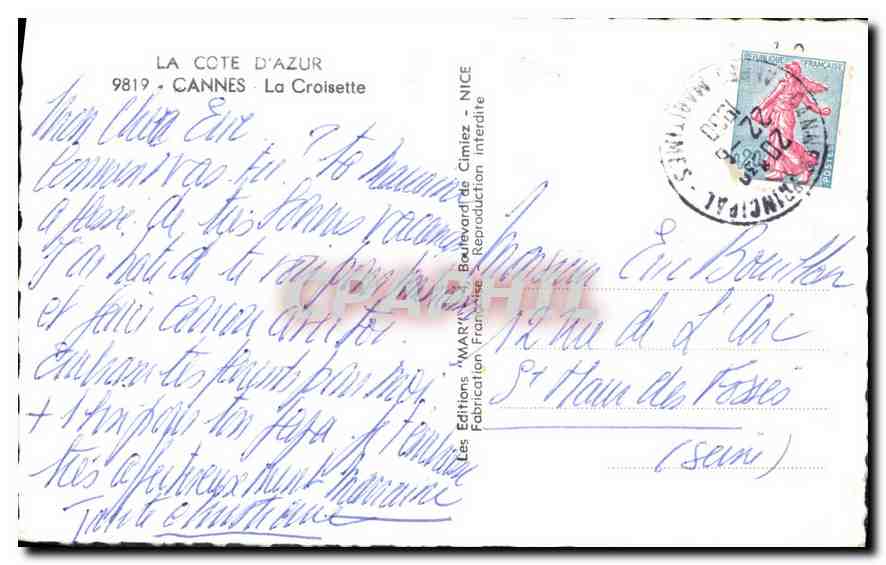 LA COTE D'AZUR
9819 - CANNES - La Croisette
Mon Cher Eric
Comment vas-tu? Ta Marraine
a passé de très bonnes vacances
J'ai hate de te voir
et faire
Embrasse tes parents pour moi
+ ton papa je t'embrasse
très affectueusement Marraine
Tante Christiane
Les Editions "MAR", Boulevard de Cimiez - NICE
Fabrication Française - Reproduction interdite
CPAPHIL
REPUBLIQUE FRANÇAISE
0,20
POSTES
CANNES PRINCIPAL
ALPES MARITIMES
Monsieur Eric Bouillon
12 Rue de L'Arc
St Maur des Fossés
(Seine)